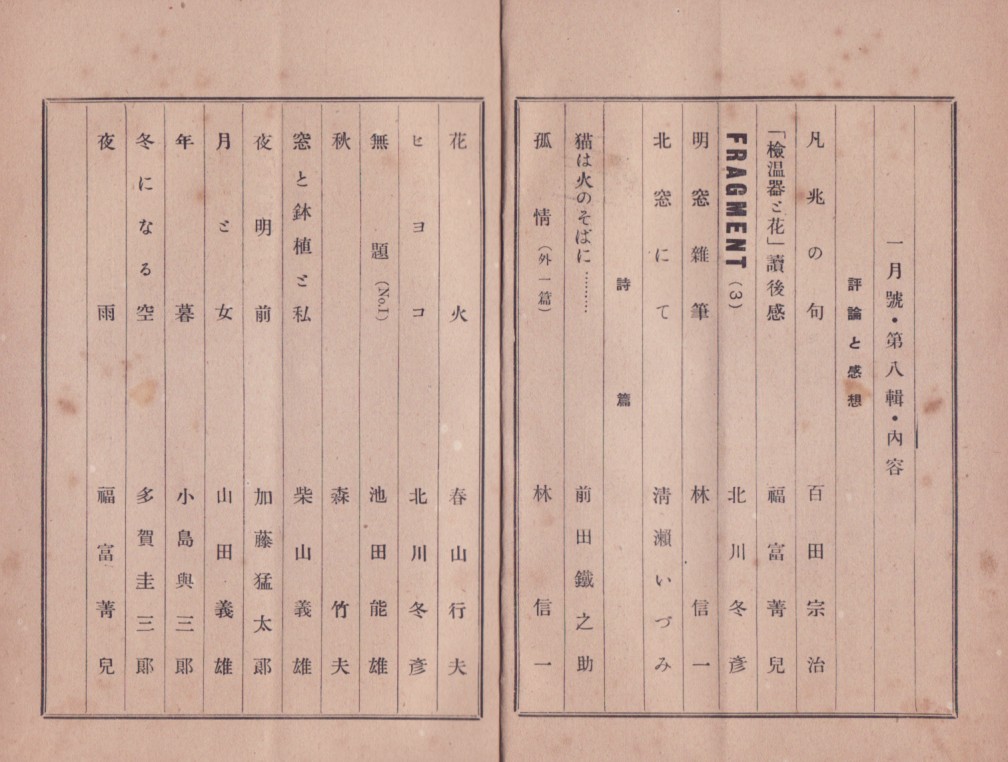 一月號・第八輯・內容
評論と感想
凡兆の句 百田宗治
「檢温器と花」讀後感 福富菁兒
FRAGMENT (3) 北川冬彥
明窓雜筆 林信一
北窓にて 淸瀨いづみ
詩篇
猫は火のそばに……… 前田鐵之助
孤情(外一篇) 林信一
花火 春山行夫
ヒヨコ 北川冬彥
無題(No.1) 池田能雄
秋 森竹夫
窓と鉢植と私 柴山義雄
夜明前 加藤猛太郞
月と女 山田義雄
年暮 小島與三郞
冬になる空 多賀圭三郞
夜雨 福富菁兒